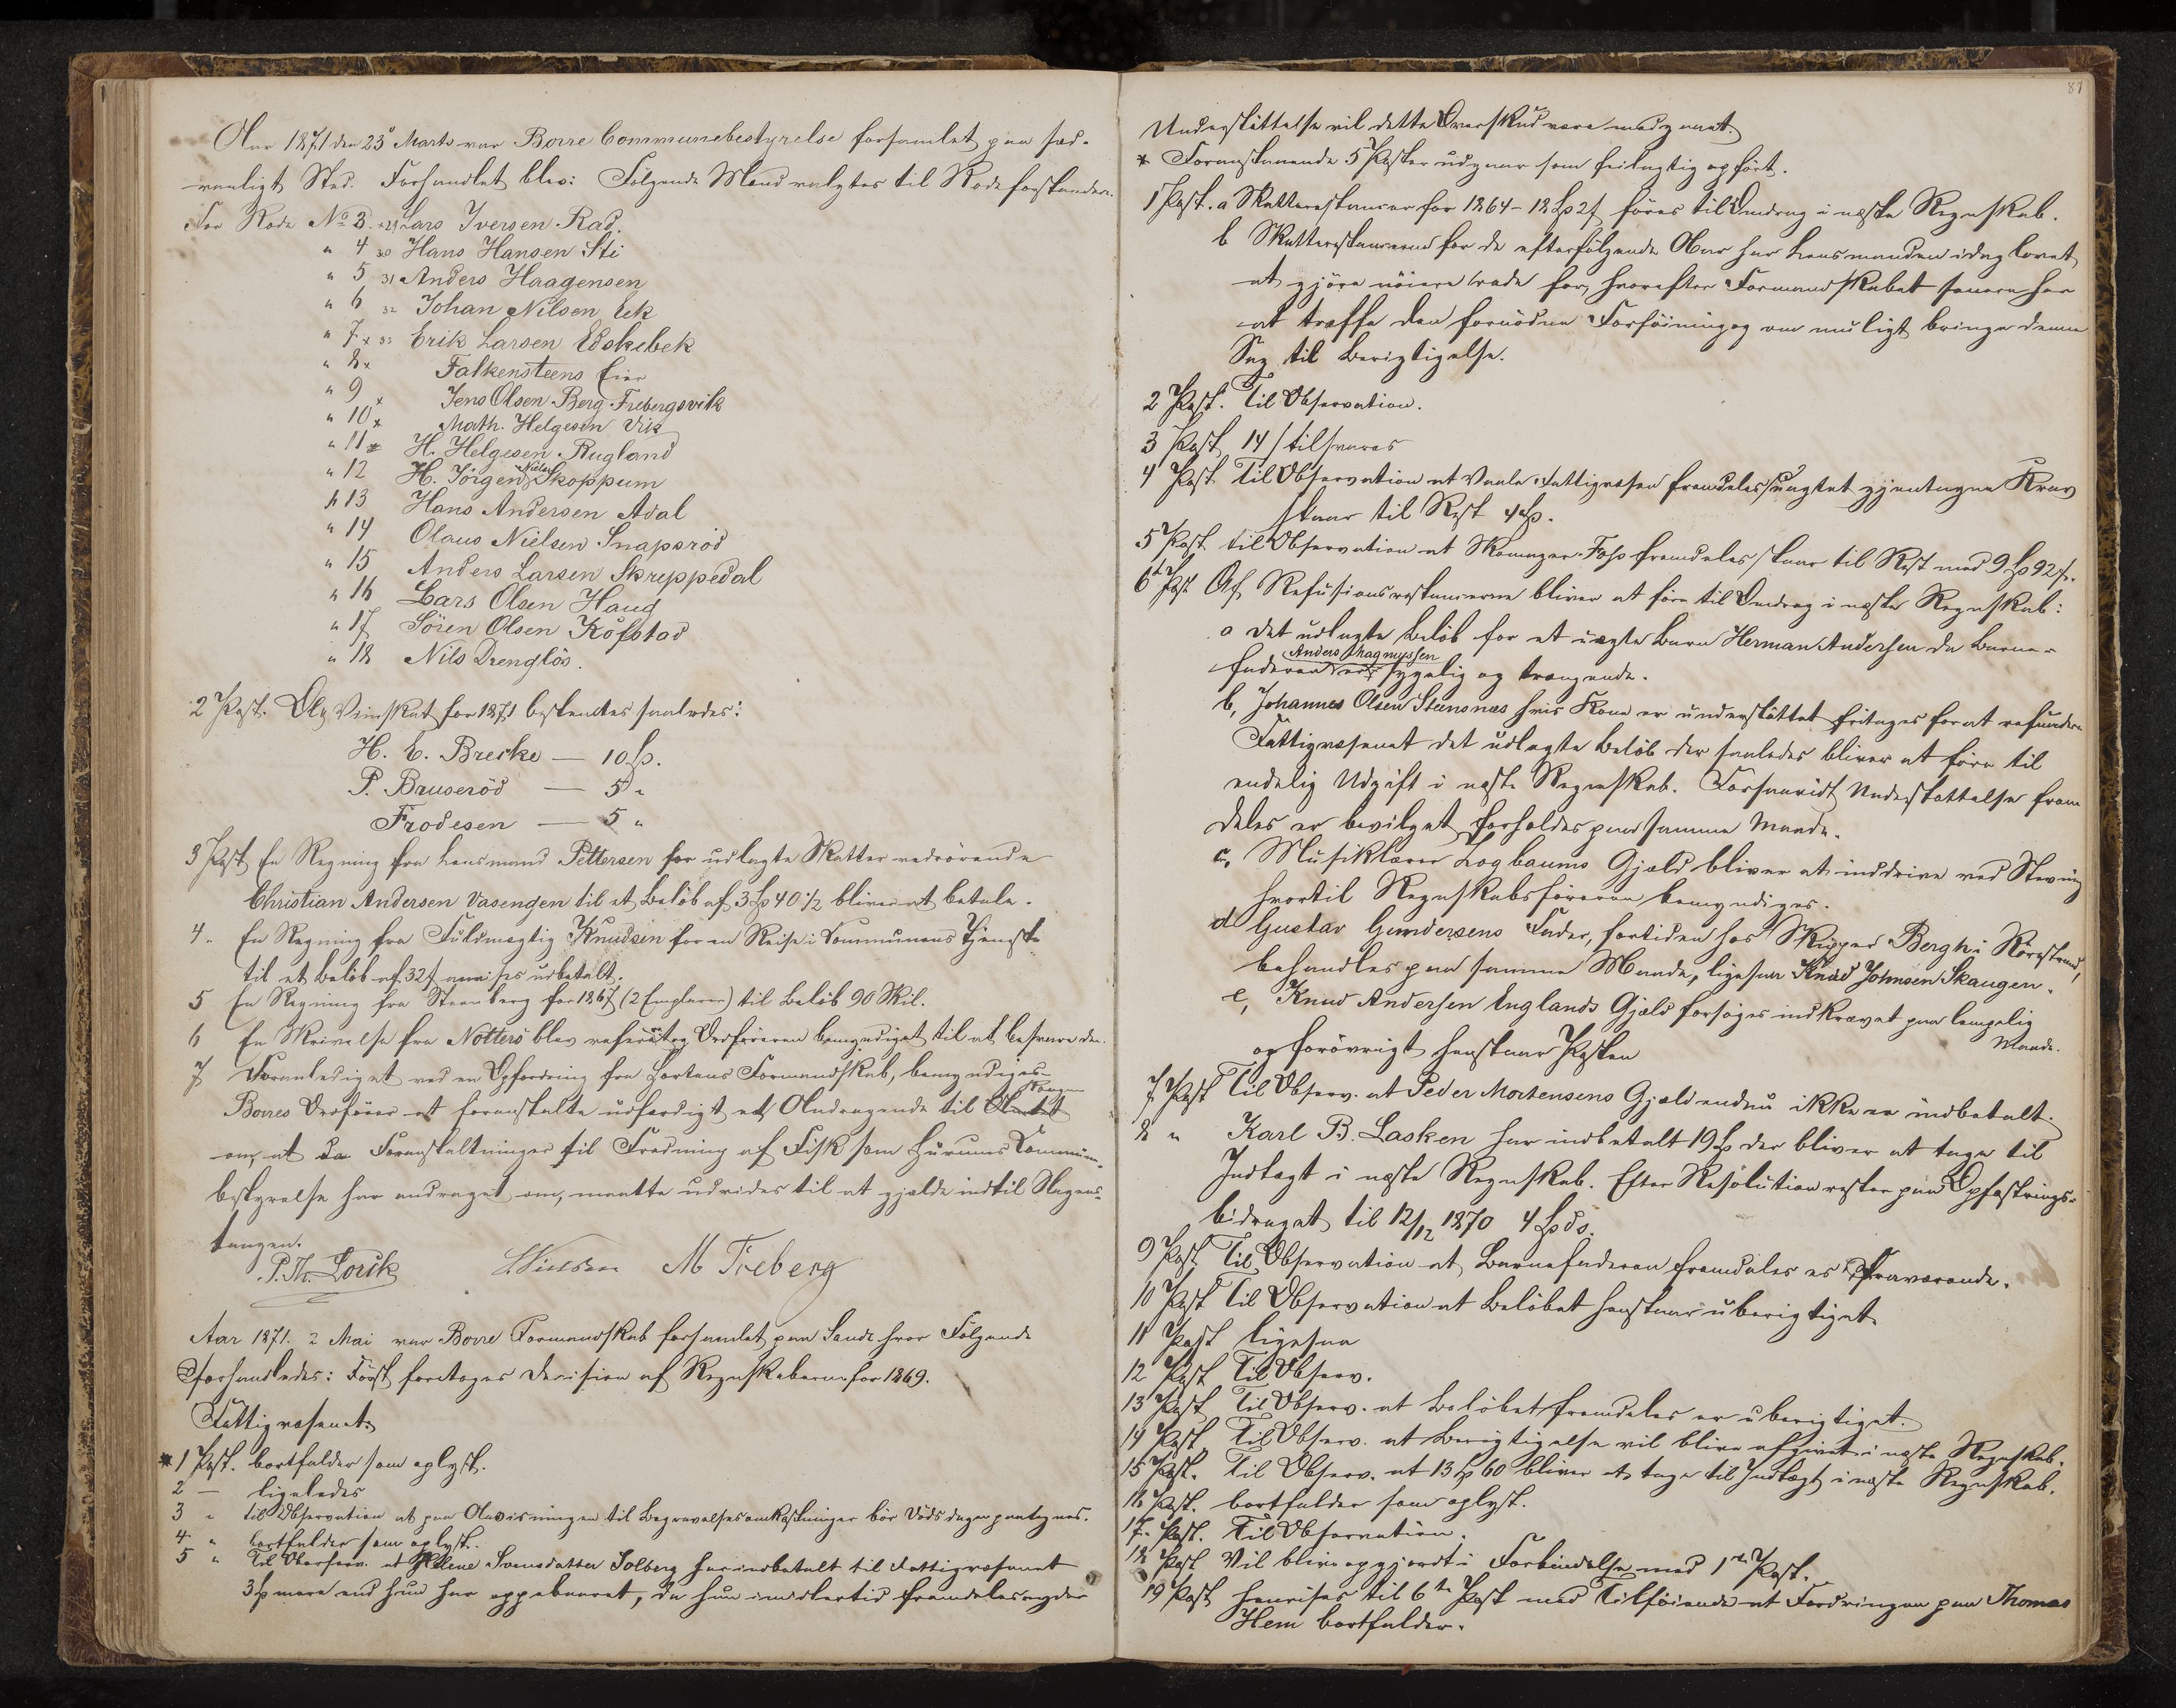 Aar 1871 den 23de Marts var Borre Communebestyrelse forsamlet paa sæd-
vanligt Sted. Forhandlet blev: Følgende Mænd valgtes til Rodeforstandere.
For Rode No 3. x 29 Lars Iversen Rad.
" 4 30 Hans Hansen Sti
" 5 31 Anders Haagensen
" 6 32 Johan Nilsen Ek
" 7 x 33 Erik Larsen Edskebek
" 8 x Falkensteens Eier
" 9 x Jens Olsen Berg Frebergsvik
" 10 x Math. Helgesen Vik
" 11 x H. Helgesen Rugland
" 12 H. Jörgen Nielsen Skoppum
" 13 Hans Andersen Adal
" 14 Olaus Nielsen Snapsröd
" 15 Anders Larsen Skreppedal
" 16 Lars Olsen Haug
" 17 Sören Olsen Kofstad
" 18 Nils Drenglös.
2 Post. Ølg Viinskat for 1871 bestemtes saaledes:
H. E. Brecke — 10 Sp.
P. Bruseröd — 5 "
Frodesen — 5 "
3 Post En Regning fra Lensmand Pettersen for udlagte Skatter vedrörende
Christian Andersen Vasengen til et Belöb af 3 Sp 40 1/2 bliver at betale.
4 " En Regning fra Fuldmægtig Knudsen for en Reise i Kommunens Tjeneste
til et Belöb af 32 s anvises udbetalt.
5 En Regning fra Steenberg for 1867 (2 Explarer) til Belöb 90 Skil.
6 En Skrivelse fra Notterö blev refereret og Ordföreren bemyndiget til at besvare den.
7 Foranlediget ved en Opfordring fra Hortens Formandskab, bemyndiges
Borres Ordförer at foranstalte udfærdiget et Andragende til Kongen
om, at de Foranstaltninger til Fredning af Fisk som Hurums Commune-
bestyrelse har andraget om, maatte udvides til at gjælde indtil Slagens-
tangen.
P. Th. Lorck Nielsen M Freberg
Aar 1871. 2 Mai var Borre Formandskab forsamlet paa Sande hvor Følgende
forhandledes: Først foretoges Decision af Regnskaberne for 1869.
Fattigvæsenet.
* 1 Post. bortfalder som oplyst.
2 — ligeledes
3 " til Observation at paa Anvisningen til Begravelsesomkostninger bör Dödsdagen paategnes.
4 " bortfalder som oplyst.
5 " Til Observ. at Helene Svensdatter Solberg har indbetalt til Fattigvæsenet
3 Sp mere end hun har oppebaaret, da hun imidlertid fremdeles nyder
87
Understöttelse vil dette Overskud være medgaaet.
* Foranstaaende 5 Poster udgaar som feilagtig opfört.
1 Post. a Skatterestancer for 1864 - 18 Sp 2 s föres til Omdrag i næste Regnskab.
b Skatterestancerne for de efterfölgende Aar har Lensmanden idag lovet
at gjöre nöiere rede for, hvorefter Formandskabet senere har
at træffe den fornödne Forföining og om muligt bringe denne
Sag til Berigtigelse.
2 Post. Til Observation.
3 Post 14 s tilsvares
4 Post Til Observation at Vaale Fattigvæsen fremdeles uagtet gjentagne Krav
staar til Rest 4 Sp.
5 Post til Observation at Skomager Foss fremdeles staar til Rest med 9 Sp 92 s.
6te Post Af Refusionsrestancerne bliver at före til Omdrag i næste Regnskab:
a det udlagte Belöb for et uægte Barn Herman Andersen da Barne-
faderen Anders Magnussen er sygelig og trængende.
b, Johannes Olsen Steensnæs hvis Kone er understöttet fritages for at refundere
Fattigvæsenet det udlagte Belöb der saaledes bliver at före til
endelig Udgift i næste Regnskab. Forsaavidt Understöttelse frem-
deles er bevilget forholdes paa samme Maade.
c, Musiklærer Logbaums Gjæld bliver at inddrive ved Stevning
hvortil Regnskabsföreren bemyndiges.
d Gustav Gundersens Fader, fortiden hos Skipper Bergh i Rörestrand,
behandles paa samme Maade, ligesaa Knud Johnsen Skaugen.
e, Knud Andersen Englands Gjæld forsöges indkrævet paa lempelig
Maade.
og forövrigt henstaar Posten
7 Post Til Observ. at Peder Mortensens Gjæld endnu ikke er indbetalt.
8 " Karl B. Lasken har indbetalt 19 Sp der bliver at tage til
Indtægt i næste Regnskab. Efter Resolution rester paa Opfostrings-
bidraget til 12/12 1870 4 Sp ds.
9 Post Til Observation at Barnefaderen fremdeles er fraværende.
10 Post Til Observation at Belöbet henstaar uberigtiget.
11 Post ligesaa
12 Post Til Observ.
13 Post Til Observ. at Belöbet fremdeles er uberigtiget.
14 Post Til Observ. at Berigtigelse vil blive afgivet i næste Regnskab.
15 Post. Til Observ. at 13 Sp 60 bliver at tage til Indtægt i næste Regnskab.
16 Post. bortfalder som oplyst.
17 Post. Til Observation.
18 Post Vil blive opgjordt i Forbindelse med 1ste Post.
19 Post henvises til 6te Post med Tilföiende at Fordringen paa Thomas
Hem bortfalder.